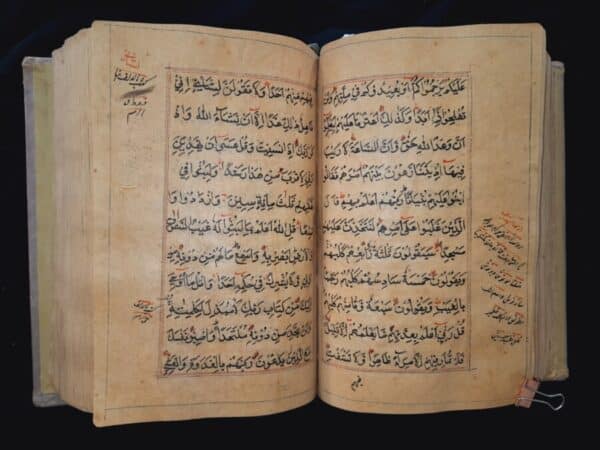 عَلَيْكُمْ يَرْجُمُوكُمْ أَوْ يُعِيدُوكُمْ فِي مِلَّتِهِمْ وَلَنْ
تُفْلِحُوا إِذًا أَبَدًا وَكَذَلِكَ أَعْثَرْنَا عَلَيْهِمْ لِيَعْلَمُوا
أَنَّ وَعْدَ اللَّهِ حَقٌّ وَأَنَّ السَّاعَةَ لَا رَيْبَ
فِيهَا إِذْ يَتَنَازَعُونَ بَيْنَهُمْ أَمْرَهُمْ فَقَالُوا
ابْنُوا عَلَيْهِمْ بُنْيَانًا رَبُّهُمْ أَعْلَمُ بِهِمْ قَالَ
الَّذِينَ غَلَبُوا عَلَى أَمْرِهِمْ لَنَتَّخِذَنَّ عَلَيْهِمْ
مَسْجِدًا سَيَقُولُونَ ثَلَثَةٌ رَابِعُهُمْ كَلْبُهُمْ
وَيَقُولُونَ خَمْسَةٌ سَادِسُهُمْ كَلْبُهُمْ رَجْمًا
بِالْغَيْبِ وَيَقُولُونَ سَبْعَةٌ وَثَامِنُهُمْ كَلْبُهُمْ
قُلْ رَبِّي أَعْلَمُ بِعِدَّتِهِمْ مَا يَعْلَمُهُمْ إِلَّا قَلِيلٌ
فَلَا تُمَارِ فِيهِمْ إِلَّا مِرَاءً ظَاهِرًا وَلَا تَسْتَفْتِ
فيهم
فِيهِمْ مِنْهُمْ أَحَدًا وَلَا تَقُولَنَّ لِشَايْءٍ إِنِّي
فَاعِلٌ ذَلِكَ غَدًا إِلَّا أَنْ يَشَاءَ اللَّهُ وَاذْكُرْ
رَبَّكَ إِذَا نَسِيتَ وَقُلْ عَسَى أَنْ يَهْدِيَنِ
رَبِّي لِأَقْرَبَ مِنْ هَذَا رَشَدًا وَلَبِثُوا فِي
كَهْفِهِمْ ثَلَثَ مِائَةٍ سِنِينَ وَازْدَادُوا
تِسْعًا قُلِ اللَّهُ أَعْلَمُ بِمَا لَبِثُوا لَهُ غَيْبُ السَّمَوَتِ
وَالْأَرْضِ أَبْصِرْ بِهِ وَأَسْمِعْ مَا لَهُمْ مِنْ دُونِهِ مِنْ
وَلِيٍّ وَلَا يُشْرِكُ فِي حُكْمِهِ أَحَدًا وَاتْلُ مَا أُوحِيَ
إِلَيْكَ مِنْ كِتَابِ رَبِّكَ لَا مُبَدِّلَ لِكَلِمَتِهِ
وَلَنْ تَجِدَ مِنْ دُونِهِ مُلْتَحَدًا وَاصْبِرْ نَفْسَكَ
مَعَ الَّذِينَ يَدْعُونَ رَبَّهُمْ بِالْغَدَوةِ وَالْعَشِيِّ